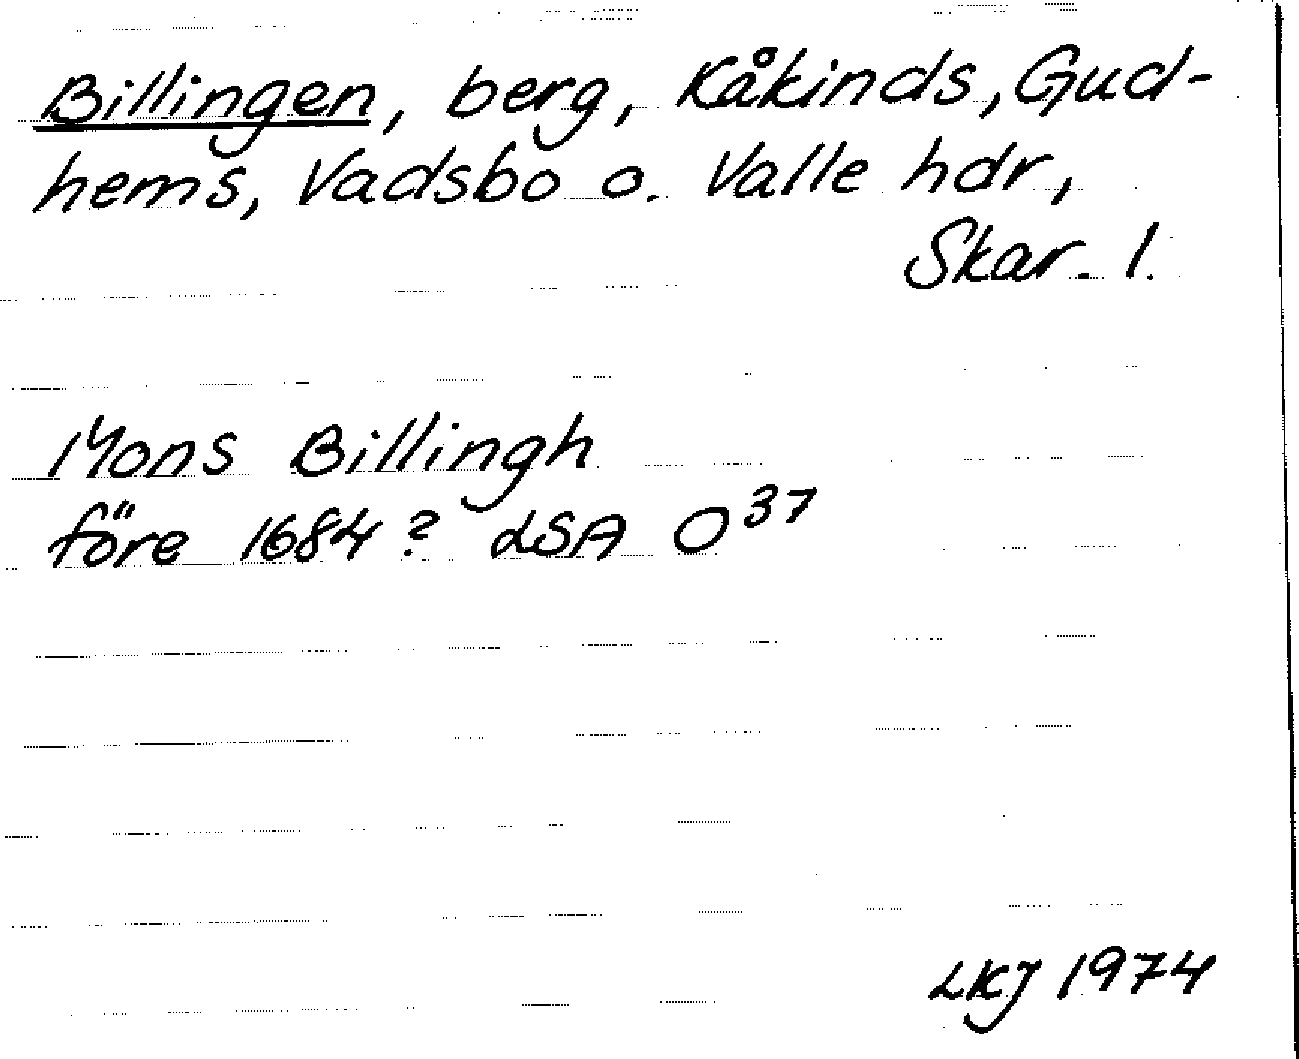 Billingen, berg, Kåkinds, Gud-
hems, Vadsbo o. Valle hdr,
Skar. l.
Mons Billingh
före 1684? LSA O³⁷
LKJ 1974